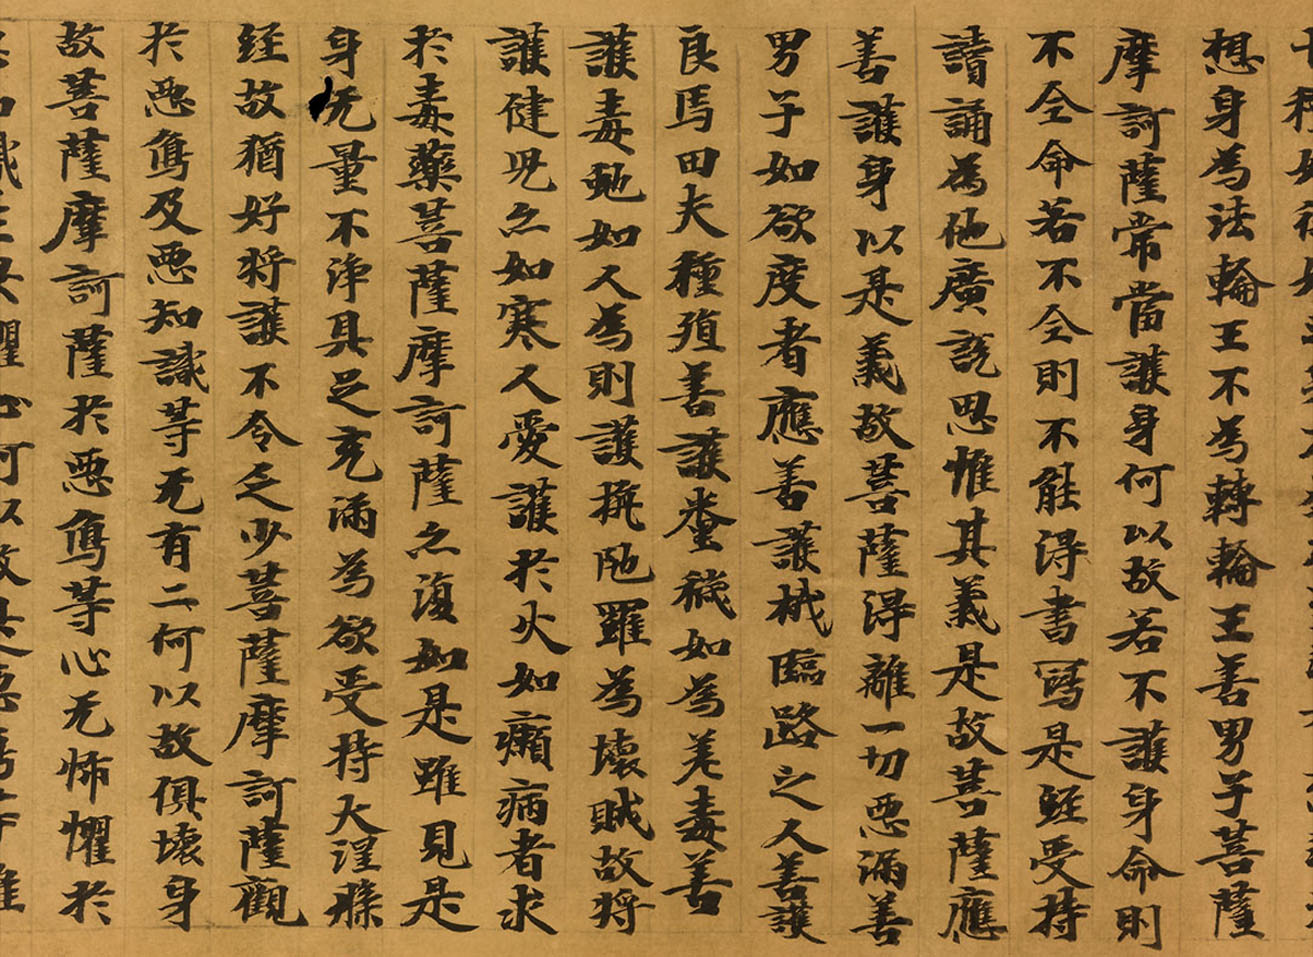 想身為法輪王不為轉輪王善男子菩薩
摩訶薩常當護身何以故若不護身命則
不全命若不全則不能得書寫是經受持
讀誦為他廣說思惟其義是故菩薩應
善護身以是義故菩薩得離一切惡漏善
男子如欲度者應善護栰臨路之人善護
良馬田夫種殖善護糞穢如為差毒善
護毒虵如人為則護栴陁羅為壞賊故將
護健兒亦如寒人愛護於火如癩病者求
於毒藥菩薩摩訶薩亦復如是雖見是
身无量不淨具足充滿為欲受持大涅槃
經故猶好將護不令乏少菩薩摩訶薩觀
於惡象及惡知識等无有二何以故俱壞身
故菩薩摩訶薩於惡象等心无怖懼於